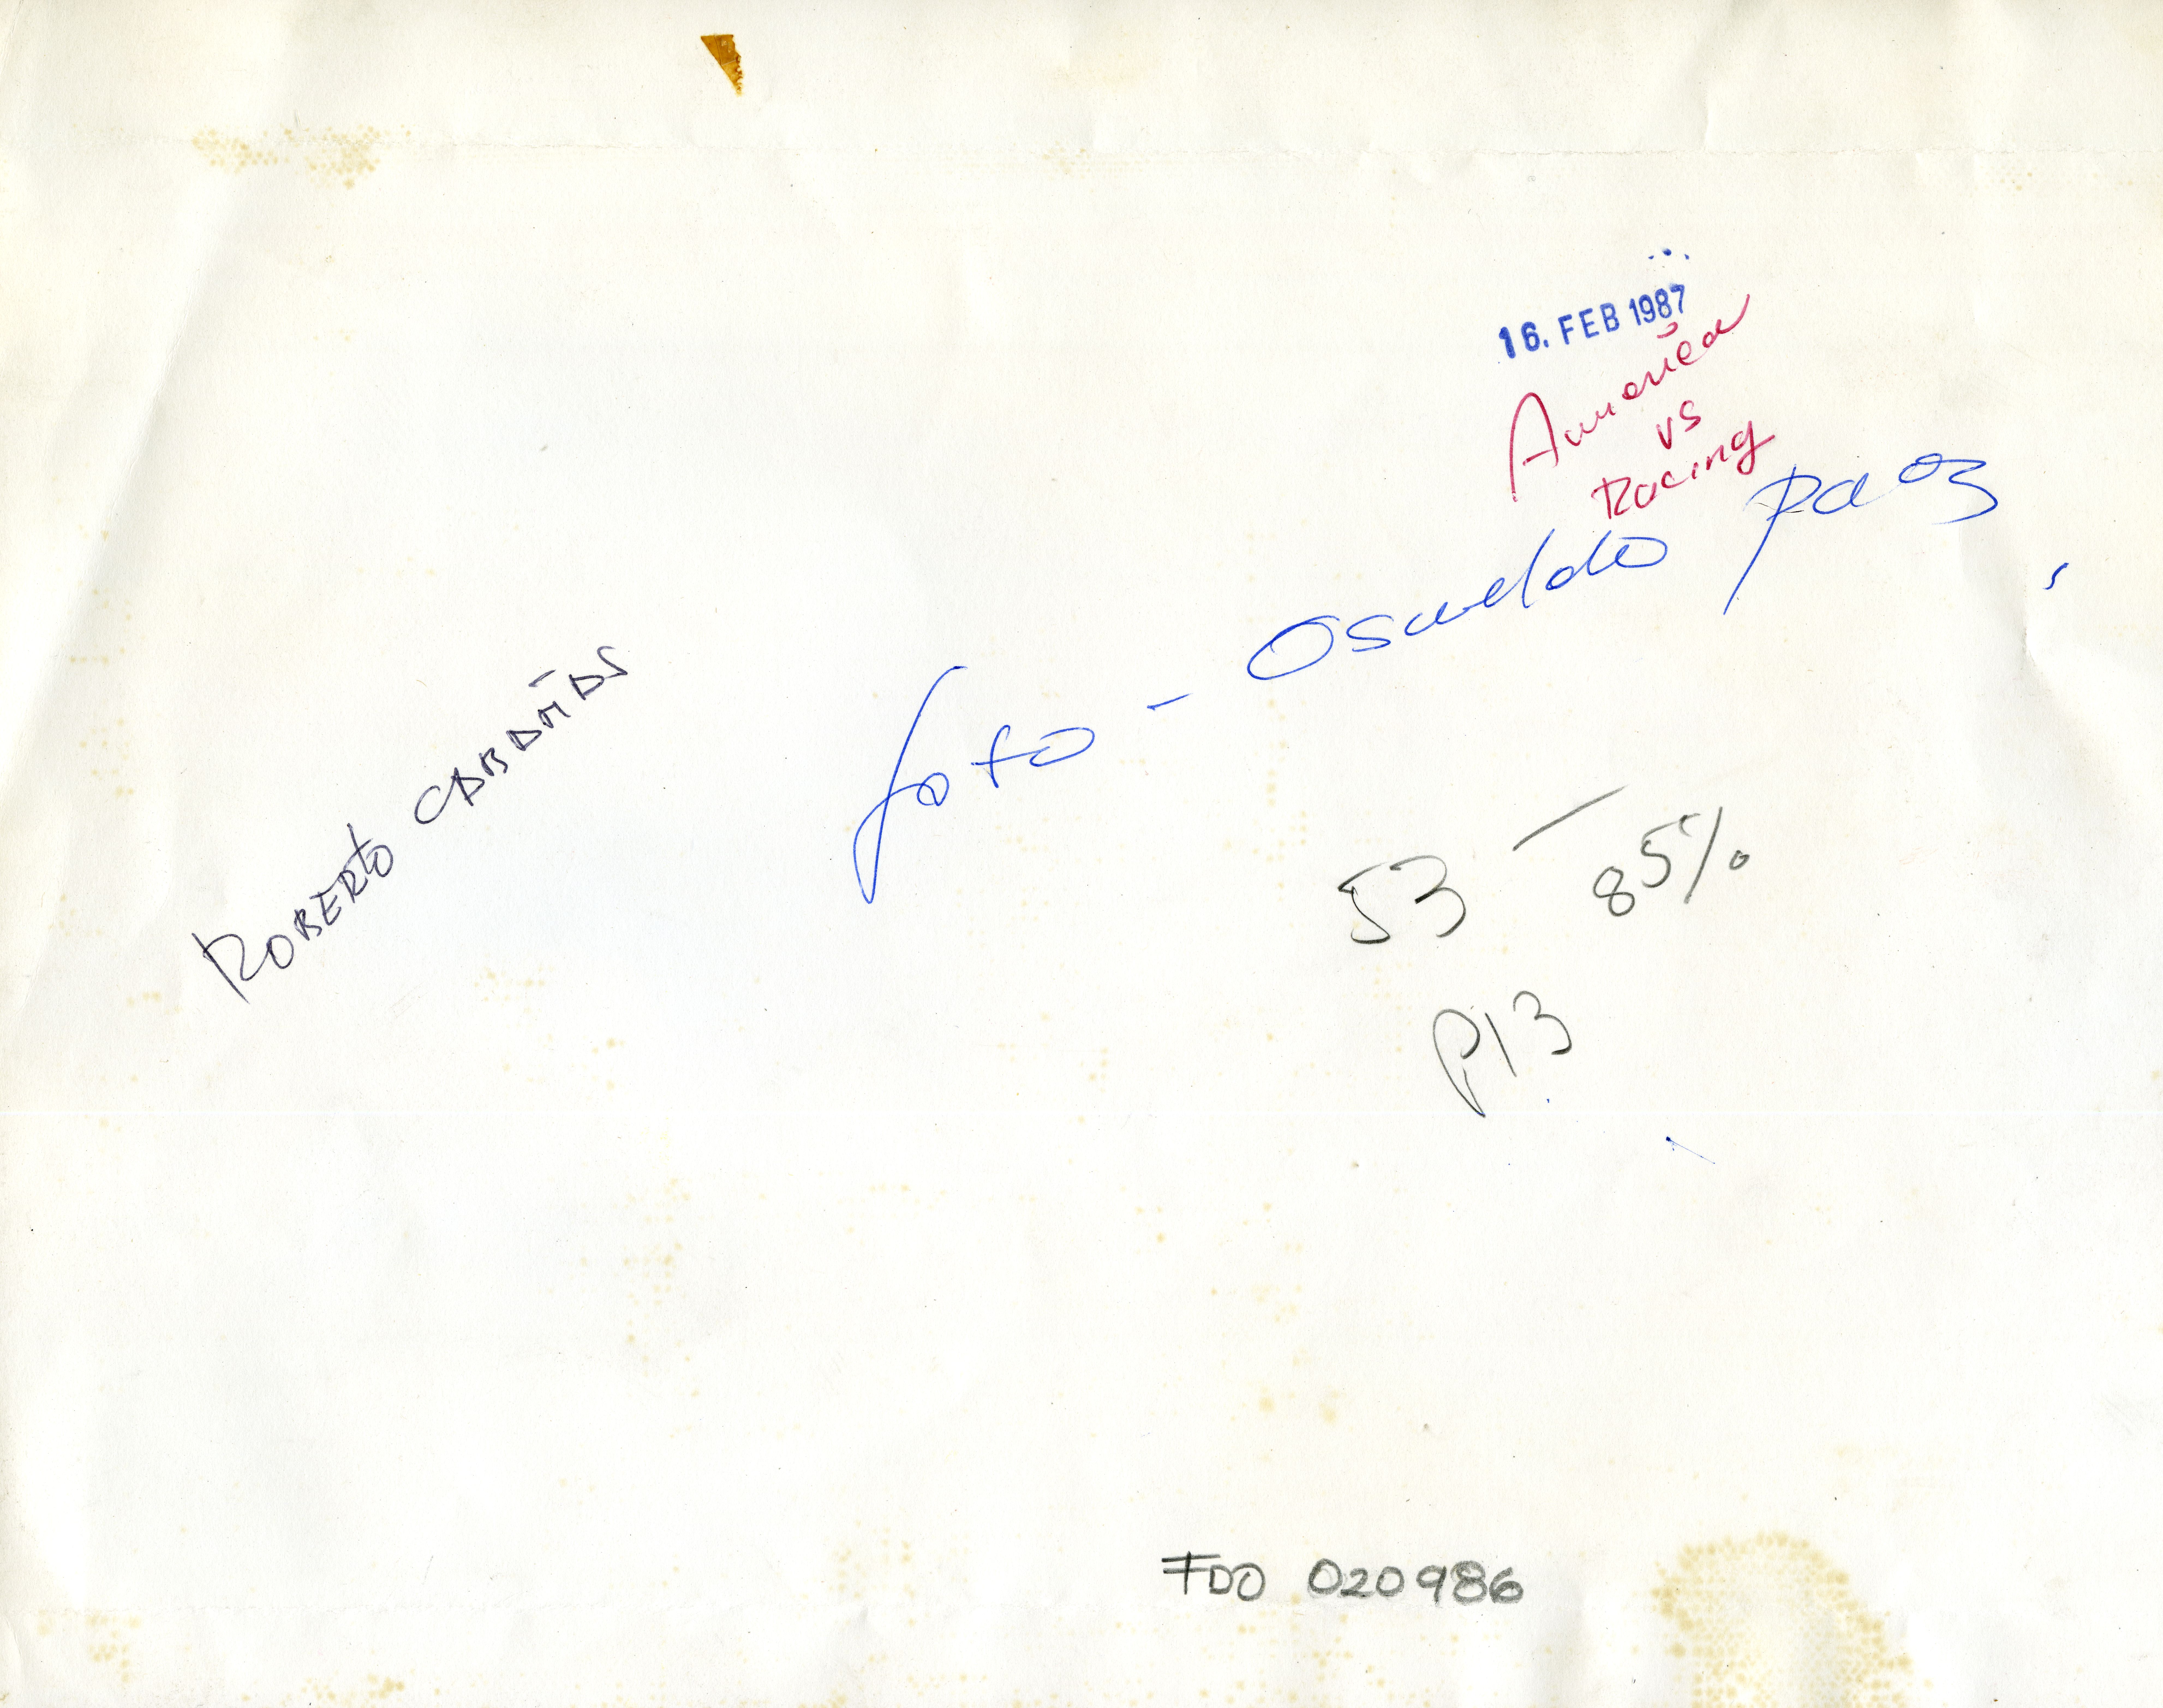 16. FEB 1987
America
vs
Racing
foto - Osualdo paez
ROBERTO CABAÑAS
53 - 85%
P13
FDO 020986